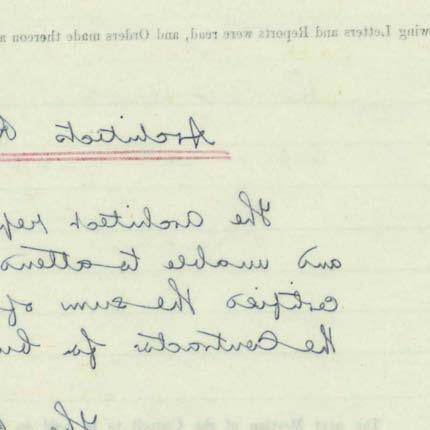 wing Letters and Reports were read, and Orders made thereon
Architects
The Architect rep
and unable to attend
certified the sum of
the Contractor for
The
The next Meeting of the Council